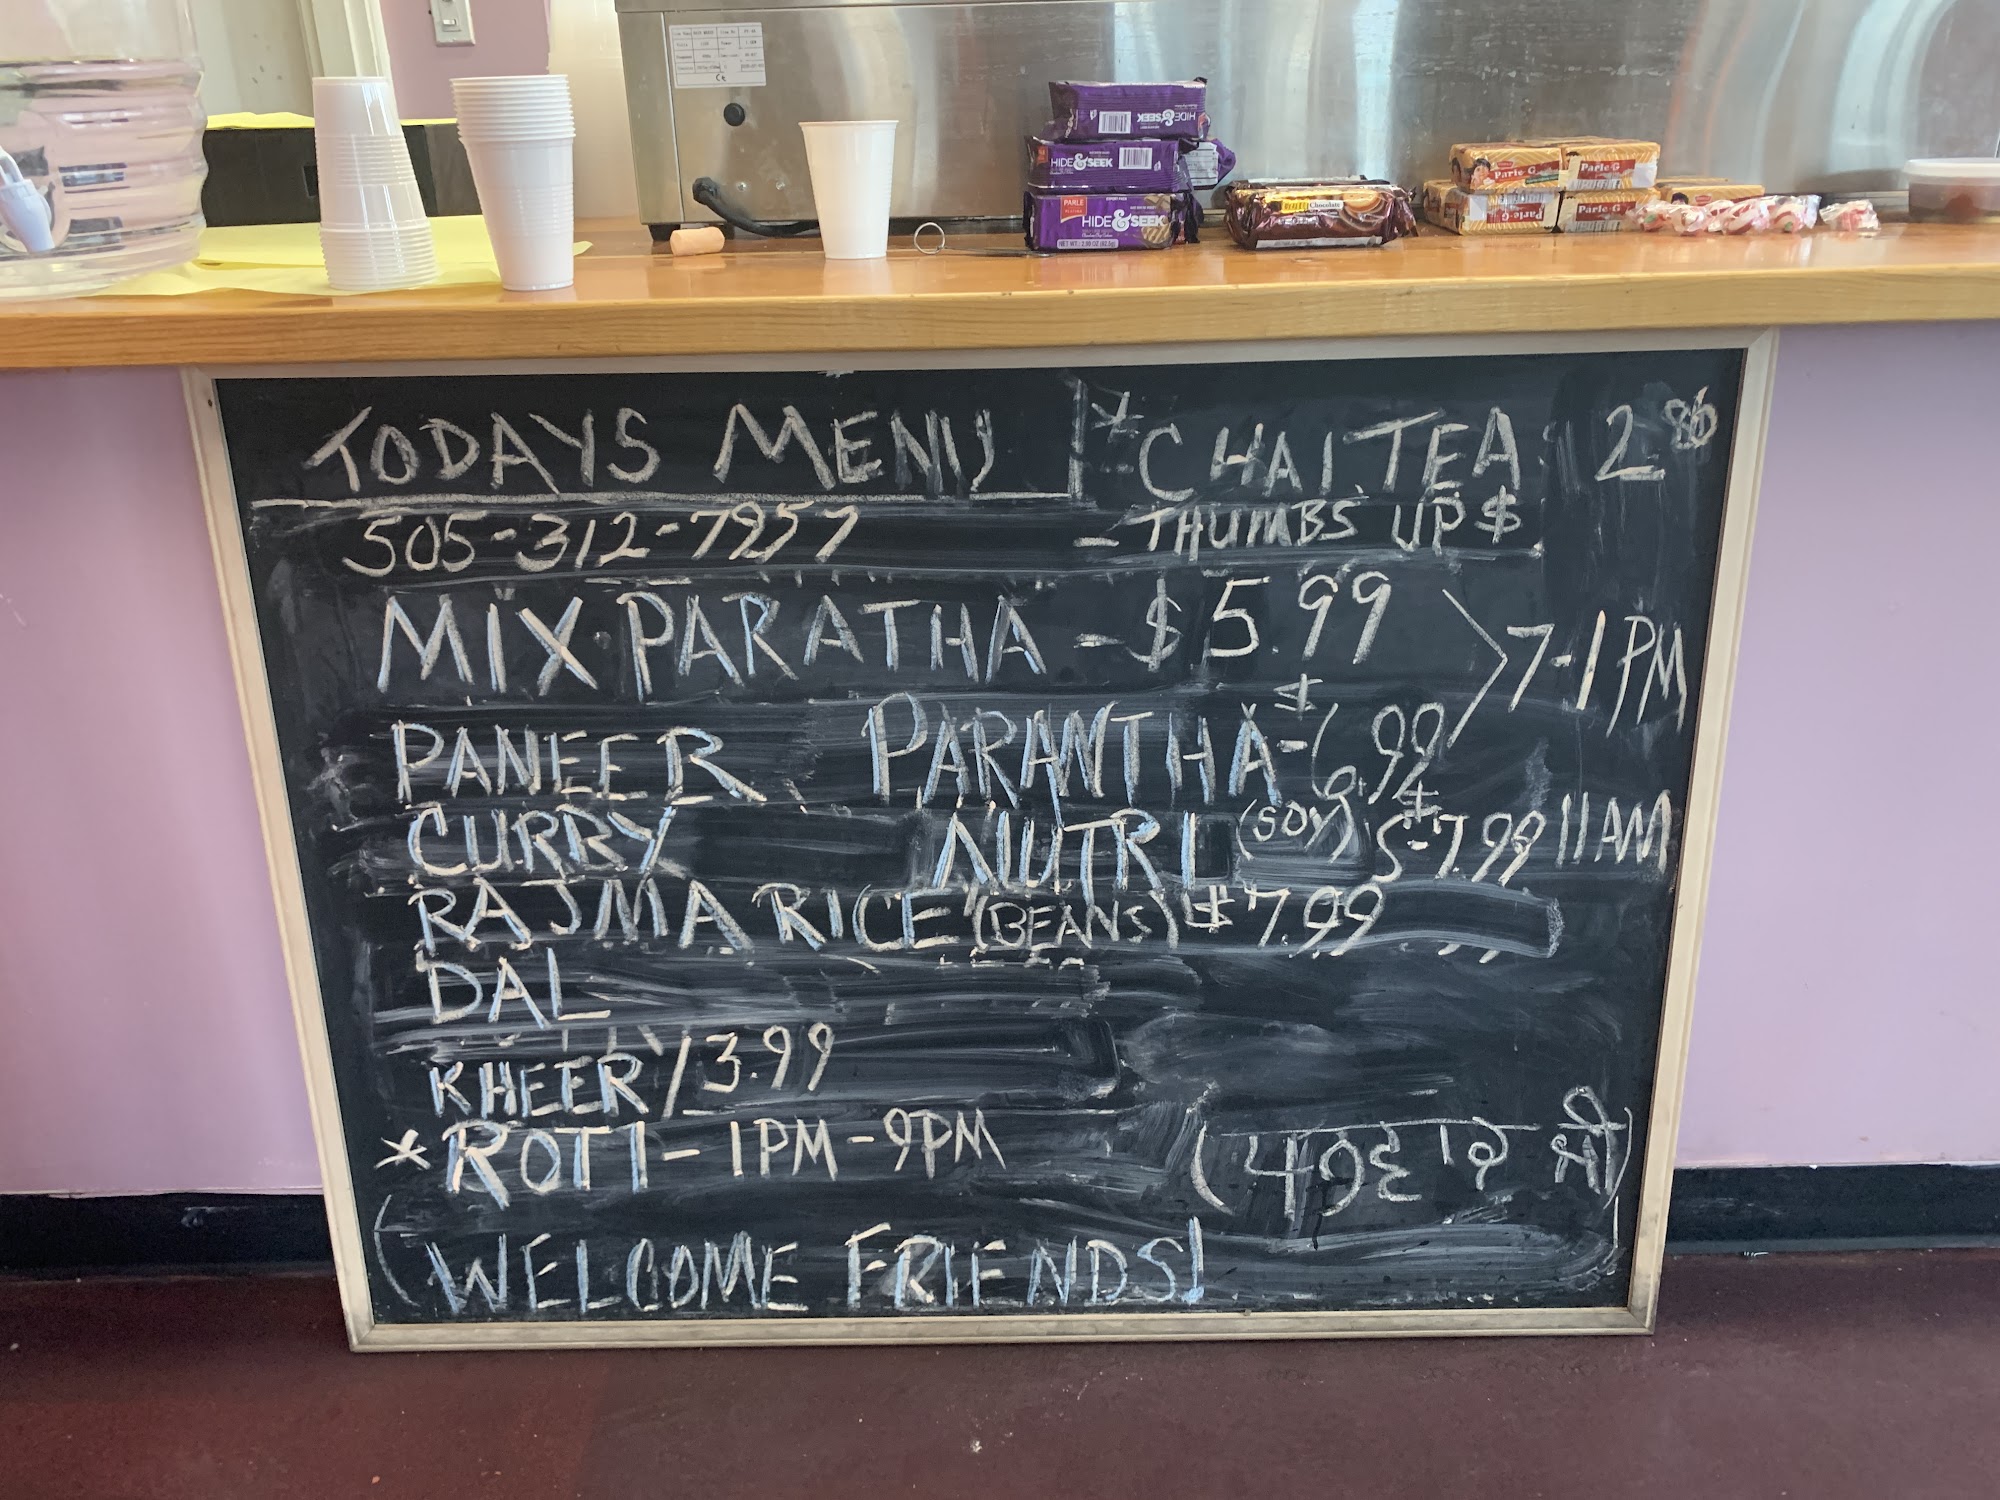 HIDE&SEEK
HIDE&SEEK
PARLE
HIDE&SEEK
NET WT.: 2.89 OZ (82.5g)
Chocolate
Parle-G
Parle-G
Parle-G
TODAYS MENU
* CHAI TEA 2.86
505-312-7957
- THUMBS UP $
MIX PARATHA - $5.99
7-1 PM
PANEER PARANTHA - $6.99
CURRY NUTRI (SOY) $-7.99 11 AM
RAJMA RICE (BEANS) $7.99
DAL
KHEER / 3.99
* ROTI - 1PM - 9PM
(WELCOME FRIENDS!